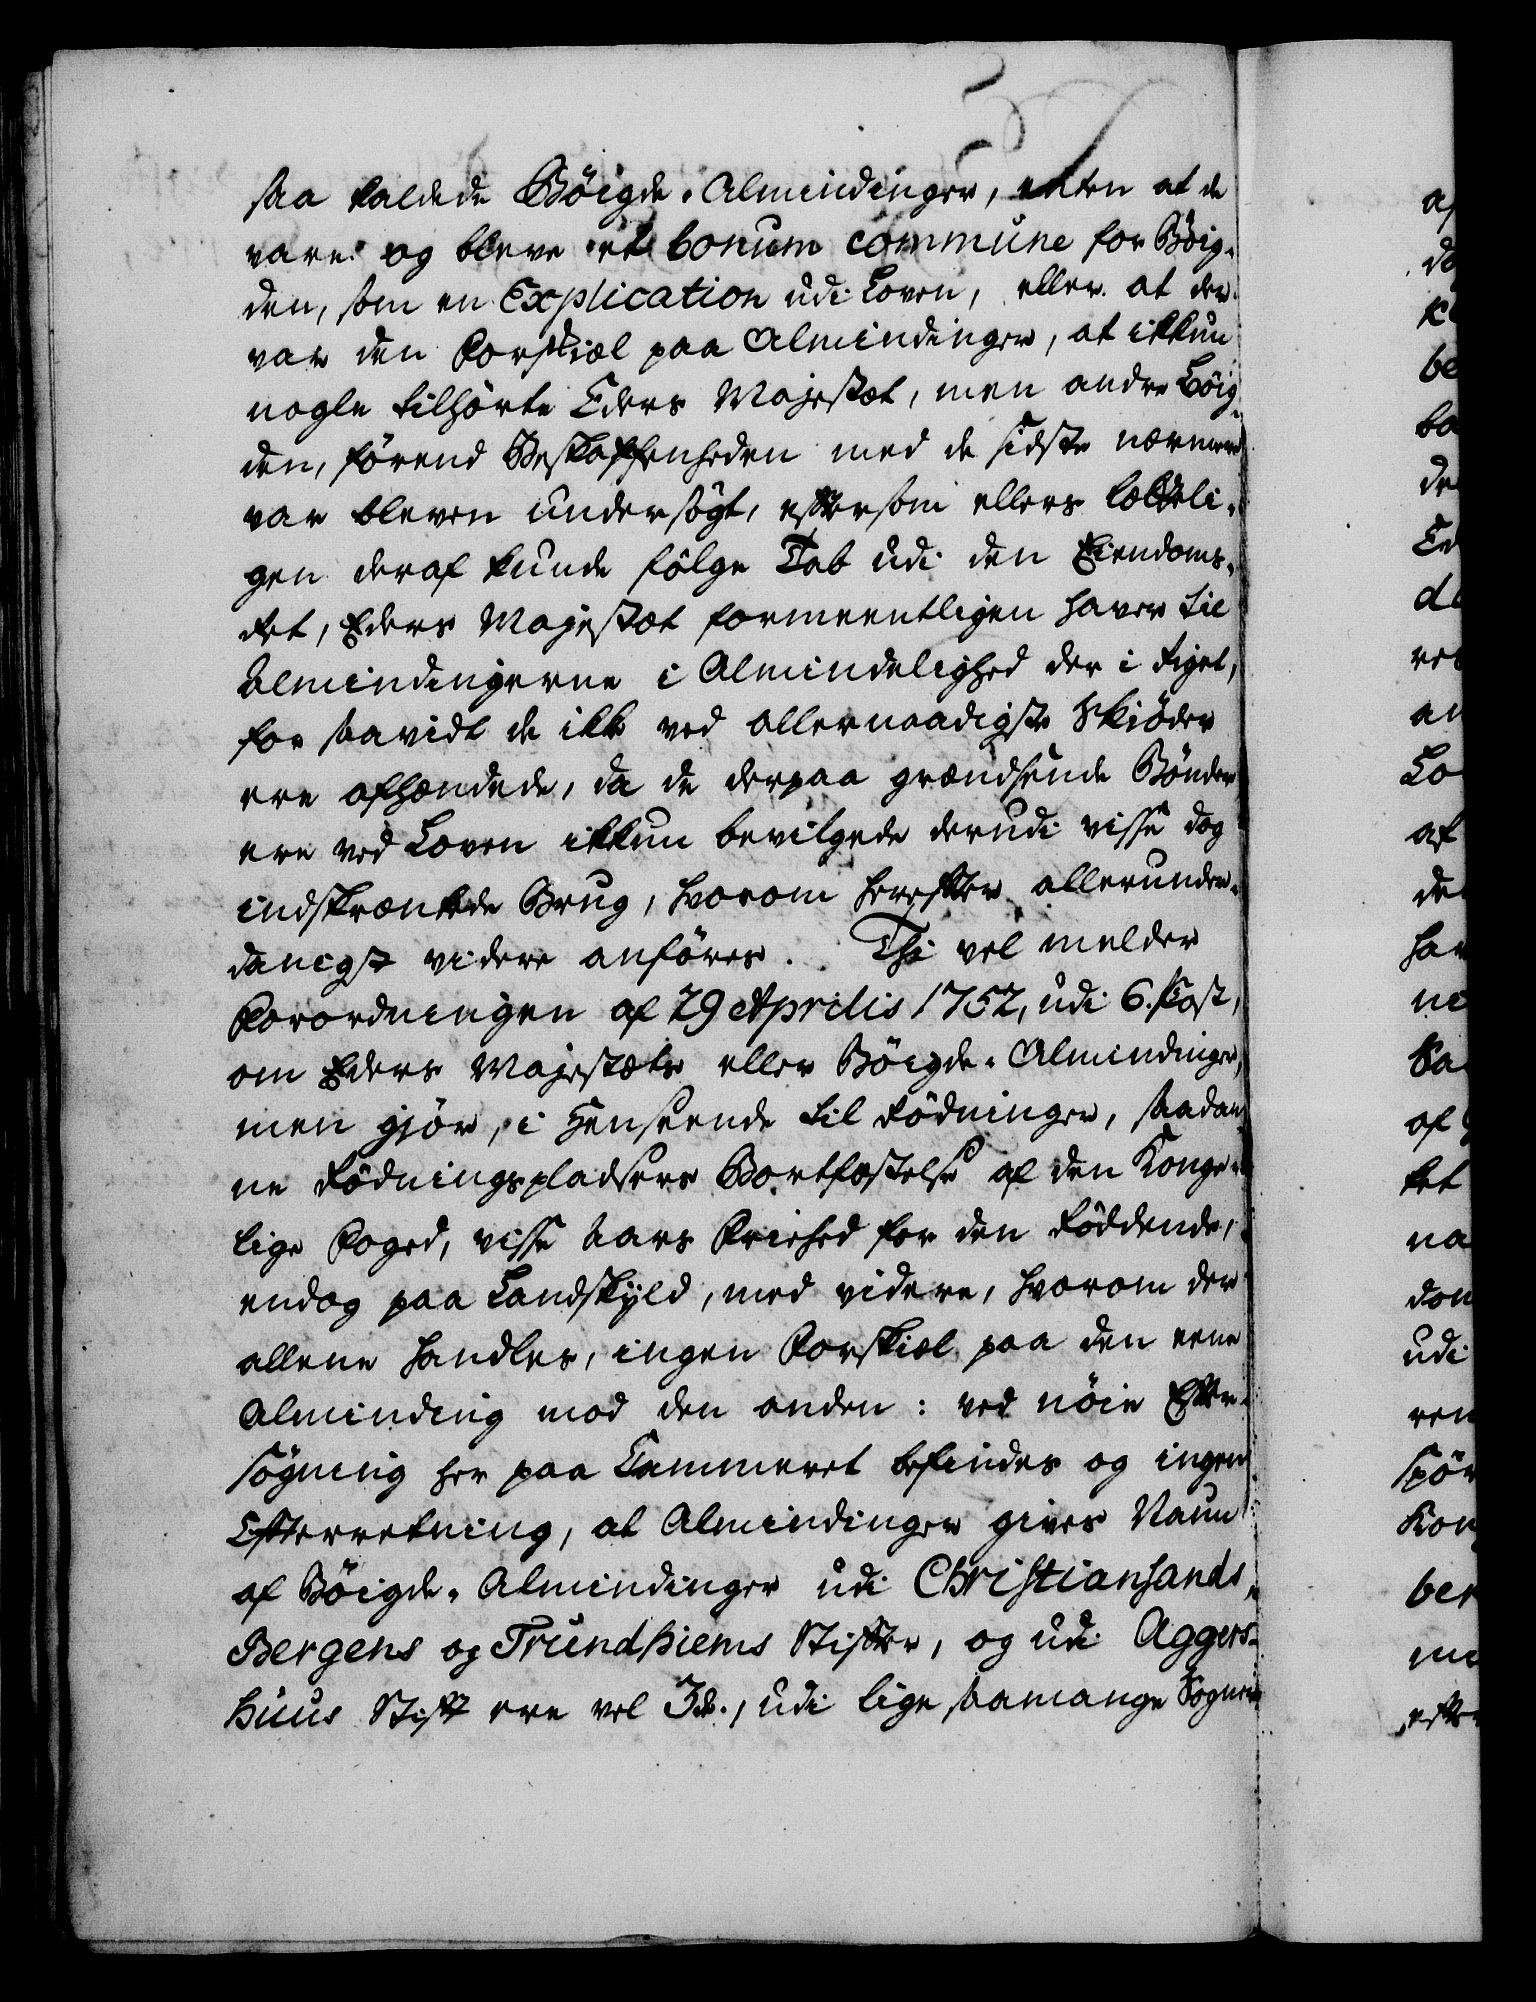 saa kaldede Bøigde-Almindinger, enten at de
vare og bleve et bonum commune for Bøig-
den, som en Explication udi Loven, eller at der
var den Forskiæl paa Almindinger, at ikkun
nogle tilhørte Eders Majestæt, men andre Bøig-
den, førend Beskaffenheden med de sidste nærmere
var bleven undersøgt, eftersom ellers lætteli-
gen deraf kunde følge Tab udi den Eiendoms-
Ret, Eders Majestæt formeentligen haver til
Almindingerne i Almindelighed der i Riget,
for saavidt de ikke ved allernaadigste Skiøder
ere afhændede, da de derpaa grændsende Bønder
ere ved Loven ikkun bevilgede derudi visse dog
indskrænkede Brug, hvorom herefter allerunder-
danigst videre anføres. Thi vel melder
Forordningen af 29 Aprilis 1752, udi 6. Post,
om Eders Majestæts eller Bøigde-Almindinger,
men gjør, i Henseende til Rødninger, saadan-
ne Rødningspladsers Bortfæstelse af den Konge-
lige Foged, visse Aars Friehed for den Røddende,
endog paa Landskyld, med videre, hvorom der
allene handles, ingen Forskiæl paa den eene
Alminding mod den anden: ved nøie Efter-
søgning her paa Cammeret befindes og ingen
Efterretning, at Almindinger gives Navn
af Bøigde-Almindinger udi Christiansands,
Bergens og Trundhiems Stifter, og udi Aggers-
huus Stift ere vel 3de, udi lige saamange Sogne